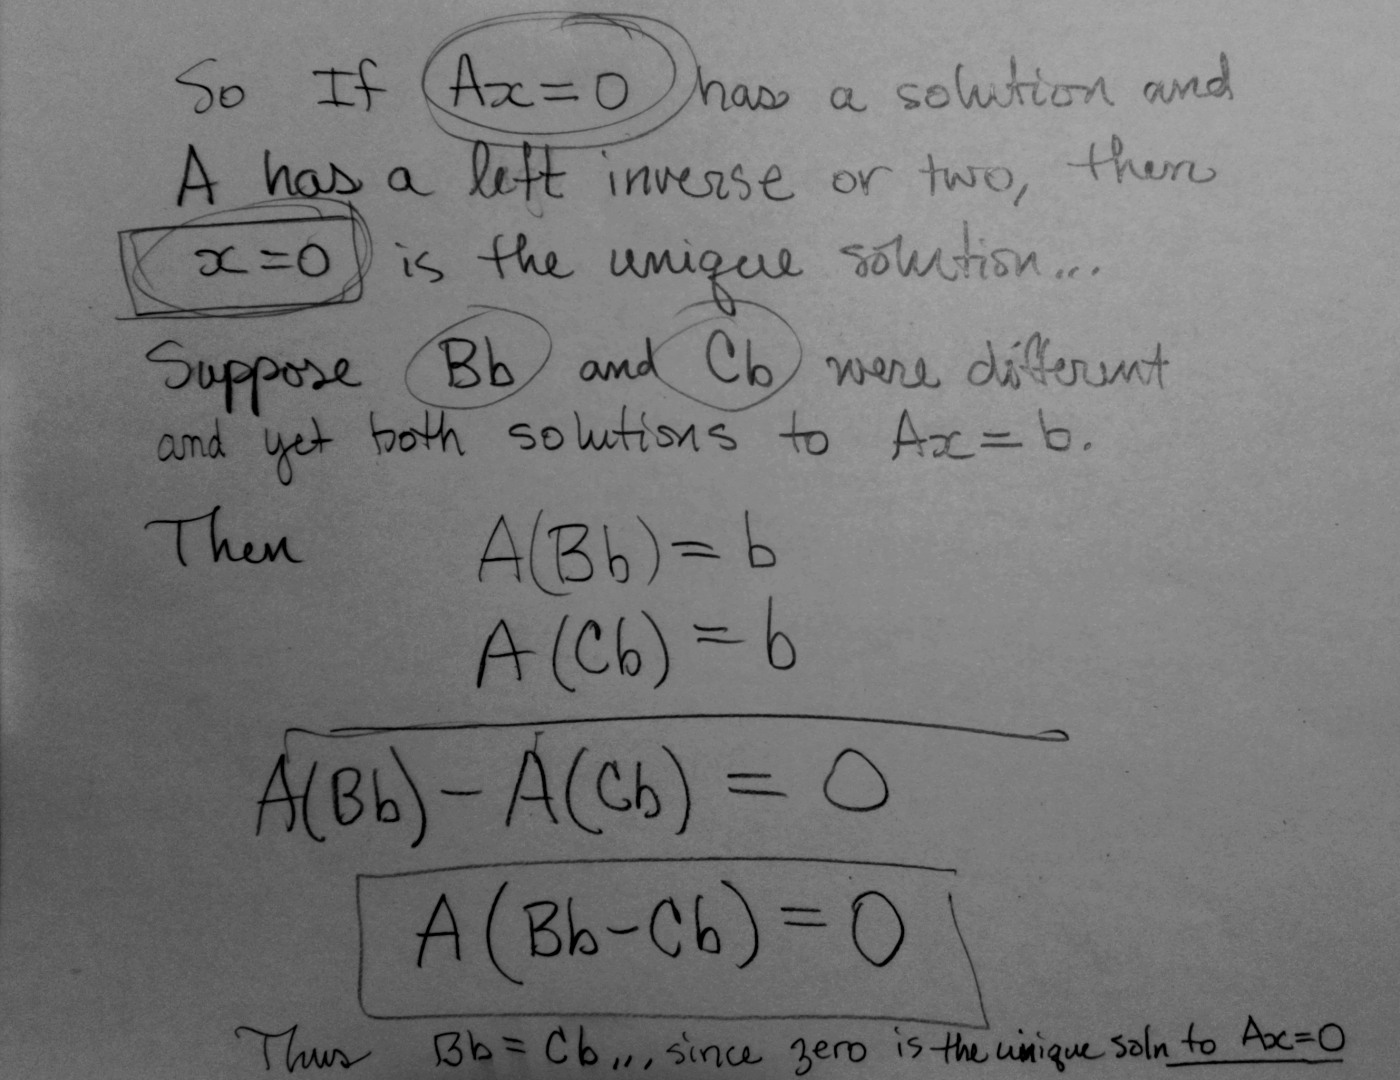 So If Ax=0 has a solution and
A has a left inverse or two, then
x=0 is the unique solution...
Suppose Bb and Cb were different
and yet both solutions to Ax=b.
Then A(Bb)=b
A(Cb)=b
A(Bb)-A(Cb)=0
A(Bb-Cb)=0
Thus Bb=Cb... since zero is the unique soln to Ax=0